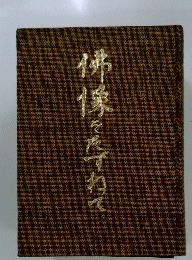 佛像をたずねて